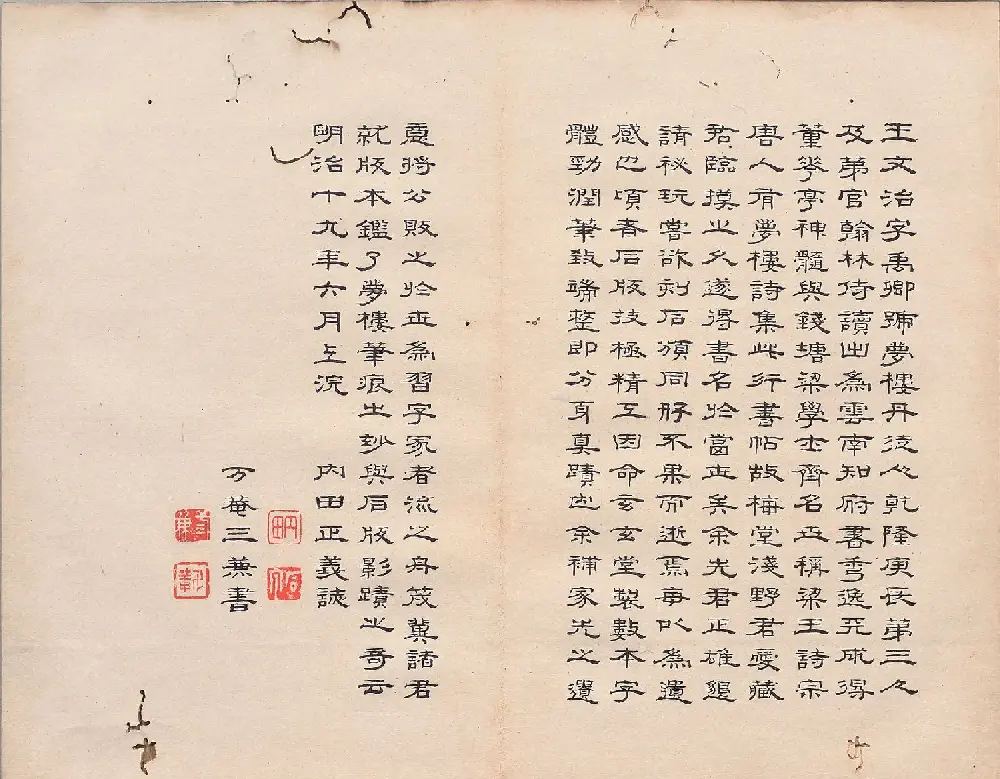 王文治字禹卿號夢樓丹徒人乾隆庚辰第三人
及弟官翰林侍讀出為雲南知府書秀逸天成得
董華亭神髓與錢塘梁學士齊名世稱梁王詩宗
唐人有夢樓詩集此行書帖故梅堂淺野君愛藏
君臨摸之久遂得書名於當世矣余先君正雄
請祕玩嘗欲刻石頒同好不果而逝焉每以為遺
感也頃者石版技極精工因命玄玄堂製數本字
體勁潤筆致端整即分身真蹟也余補家先之遺
意將公販之於世為習字家者流之舟筏冀諸君
就版本鑑了夢樓筆痕之妙與石版影蹟之奇云
明治十九年六月上浣 內田正義識
万菴三兼書